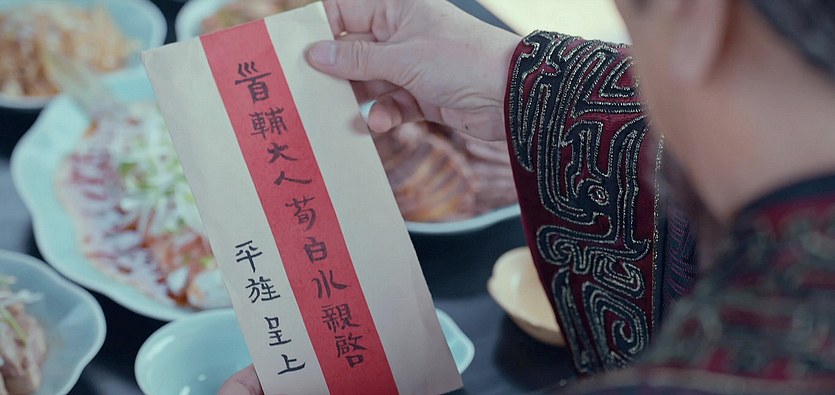 首輔大人荀白水親啓
平旌呈上